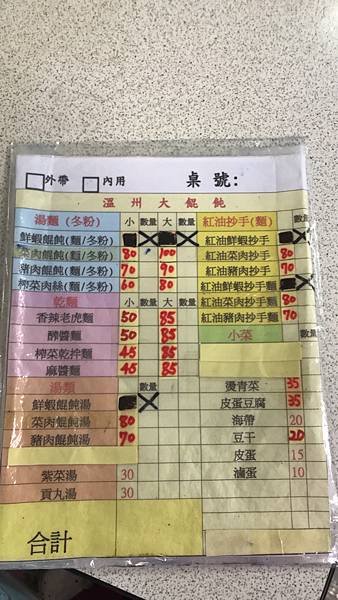 外帶 內用 桌號:
溫州大餛飩
湯麵(冬粉) 小 數量 大 數量 紅油抄手(麵) 數量
鮮蝦餛飩(麵/冬粉) 紅油鮮蝦抄手
菜肉餛飩(麵/冬粉) 80 100 紅油菜肉抄手 80
豬肉餛飩(麵/冬粉) 70 90 紅油豬肉抄手 70
榨菜肉絲(麵/冬粉) 60 80 紅油鮮蝦抄手麵
乾麵 小 數量 大 數量 紅油菜肉抄手麵 80
香辣老虎麵 50 85 紅油豬肉抄手麵 70
醡醬麵 50 85 小菜 數量
榨菜乾拌麵 45 85
麻醬麵 45 85
湯類 數量 燙青菜 35
鮮蝦餛飩湯 皮蛋豆腐 35
菜肉餛飩湯 80 海帶 20
豬肉餛飩湯 70 豆干 20
皮蛋 15
紫菜湯 30 滷蛋 10
貢丸湯 30
合計